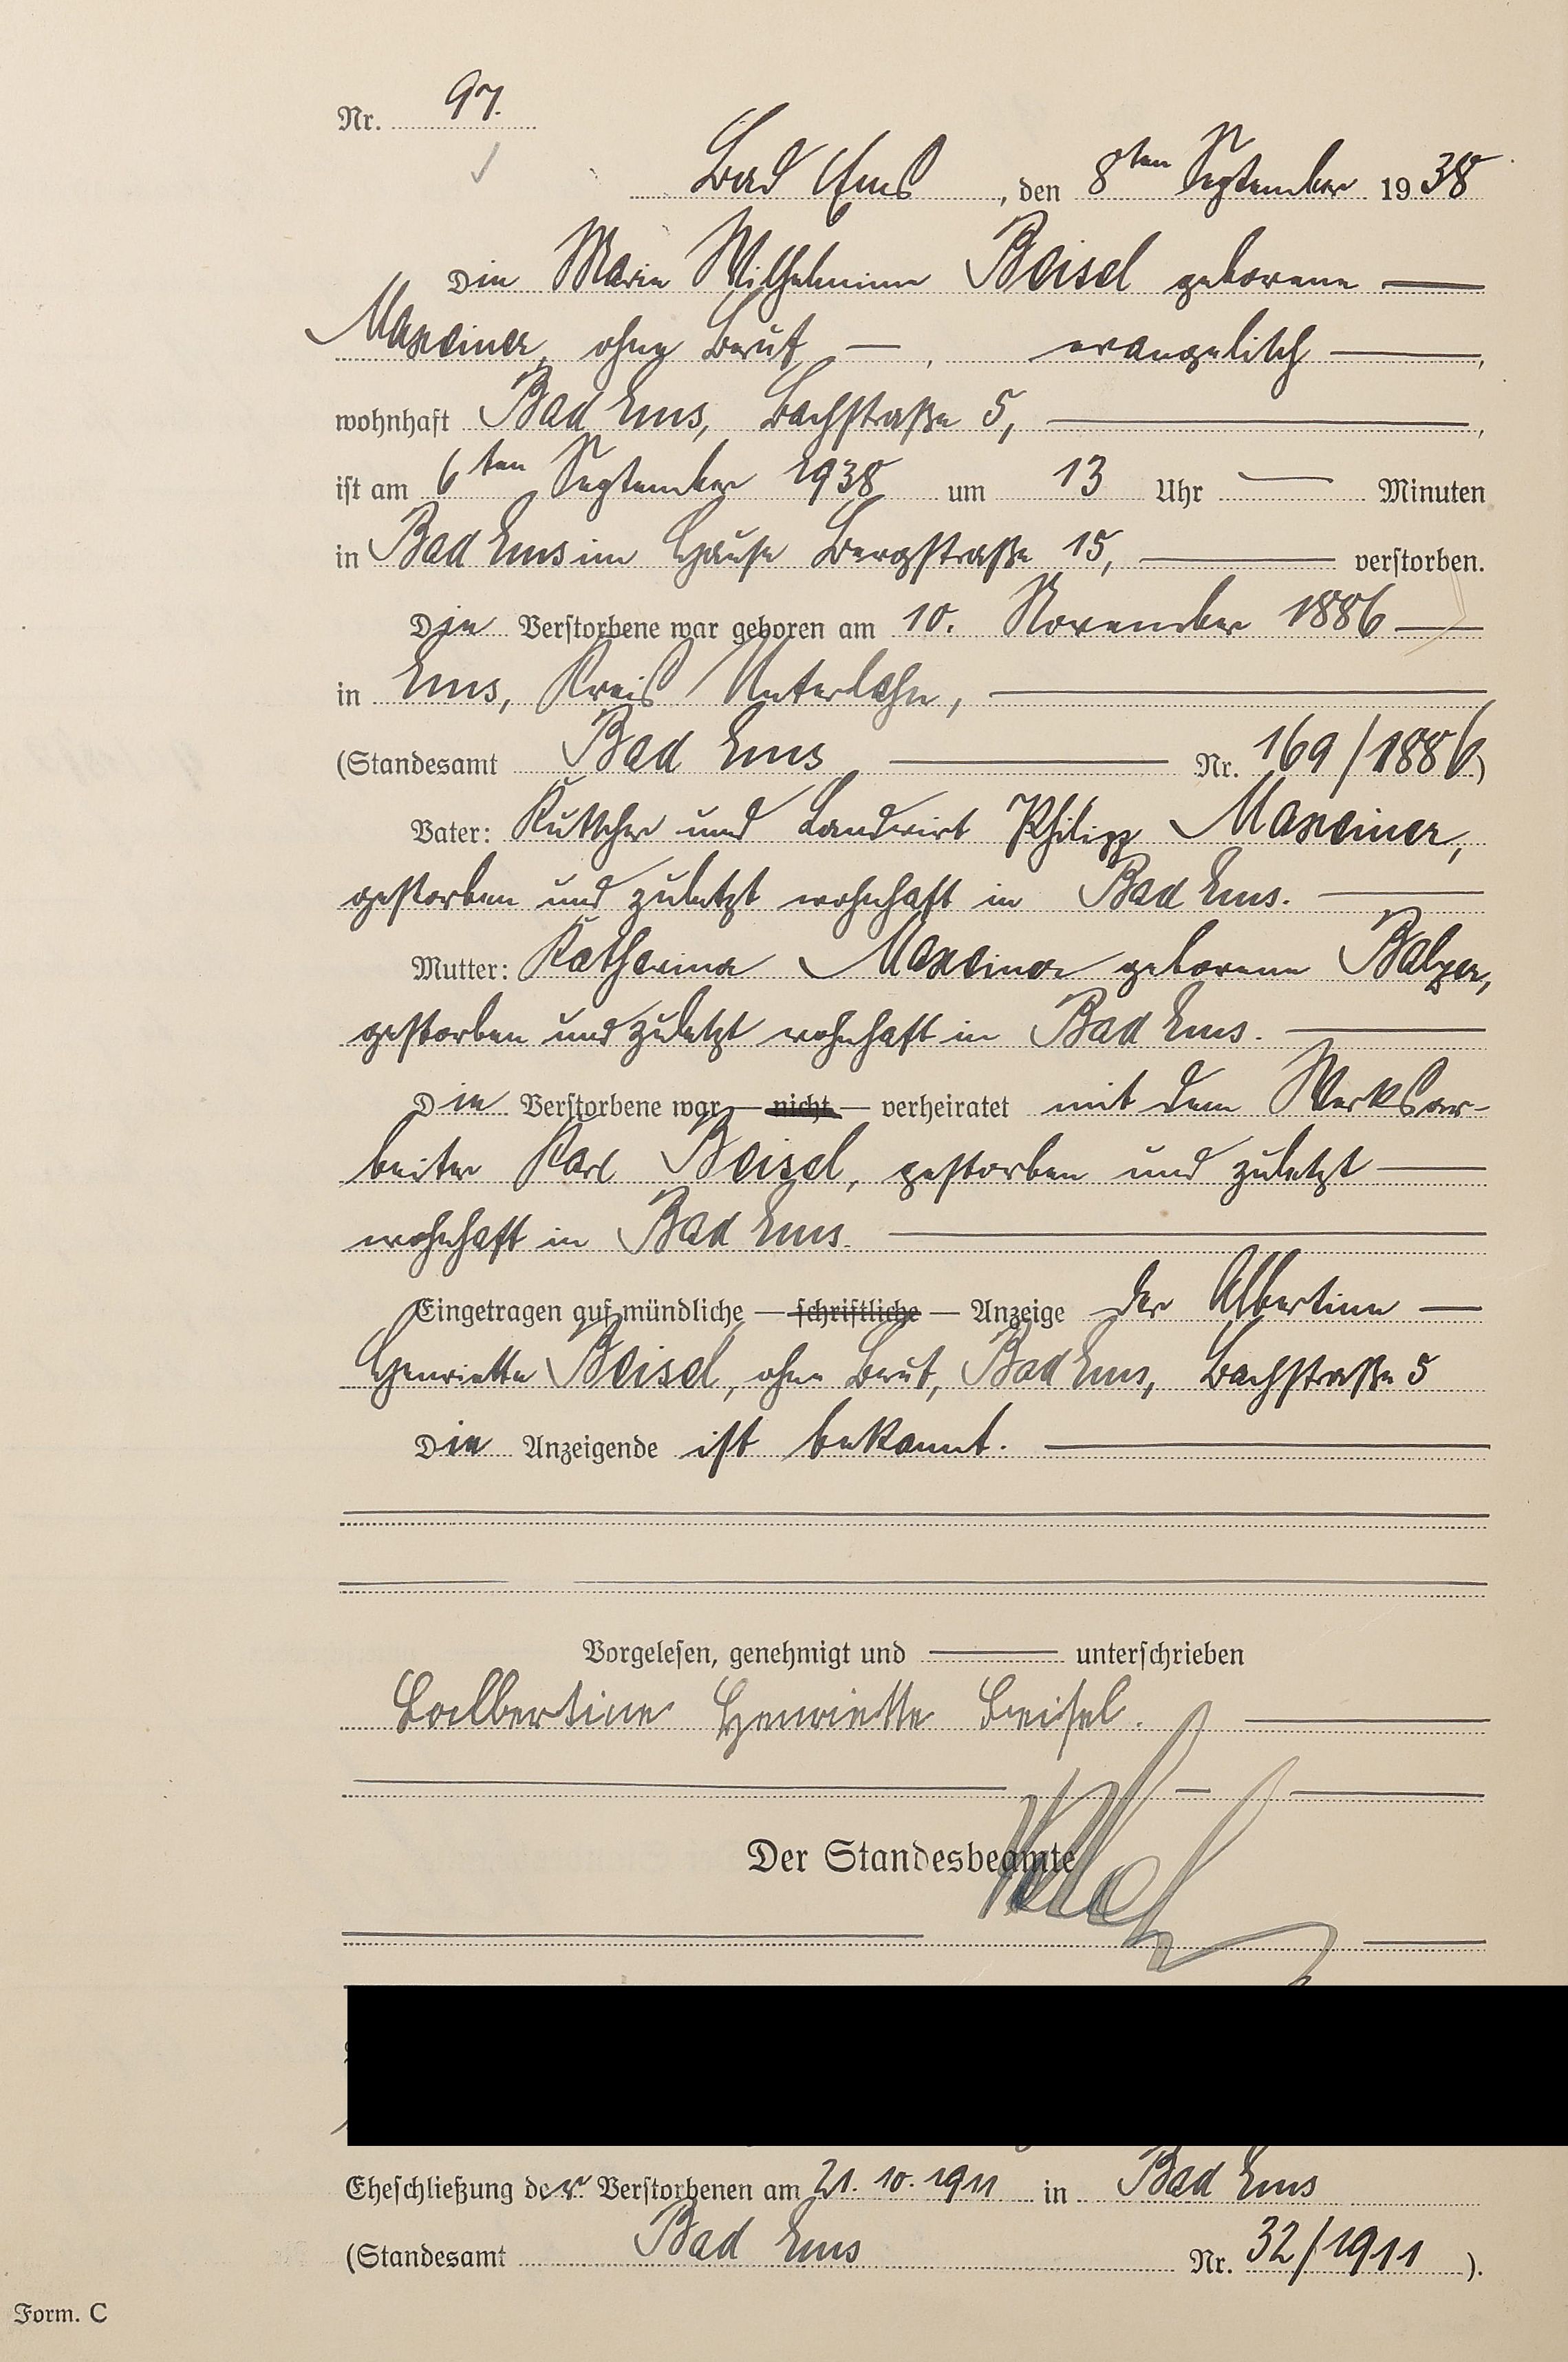 Nr. 97.
Bad Ems, den 8ten September 1938
Die Marie Wilhelmine Beisel geborene —
Maxeiner, ohne Beruf, — , evangelisch —,
wohnhaft Bad Ems, Bachstraße 5, —,
ist am 6ten September 1938 um 13 Uhr — Minuten
in Bad Ems im Hause Bergstraße 15, — verstorben.
Die Verstorbene war geboren am 10. November 1886 —
in Ems, Kreis Unterlahn, —
(Standesamt Bad Ems — Nr. 169/1886)
Vater: Kutscher und Landwirt Philipp Maxeiner,
gestorben und zuletzt wohnhaft in Bad Ems. —
Mutter: Katharina Maxeiner geborene Balzer,
gestorben und zuletzt wohnhaft in Bad Ems. —
Die Verstorbene war — nicht — verheiratet mit dem Werksar-
beiter Karl Beisel, gestorben und zuletzt —
wohnhaft in Bad Ems. —
Eingetragen auf mündliche — schriftliche — Anzeige der Albertine —
Henriette Beisel, ohne Beruf, Bad Ems, Bachstraße 5
Die Anzeigende ist bekannt. —
Vorgelesen, genehmigt und — unterschrieben
Henriette Beisel. —
Der Standesbeamte
Eheschließung der Verstorbenen am 21. 10. 1911 in Bad Ems
(Standesamt Bad Ems Nr. 32/1911 ).
Form. C